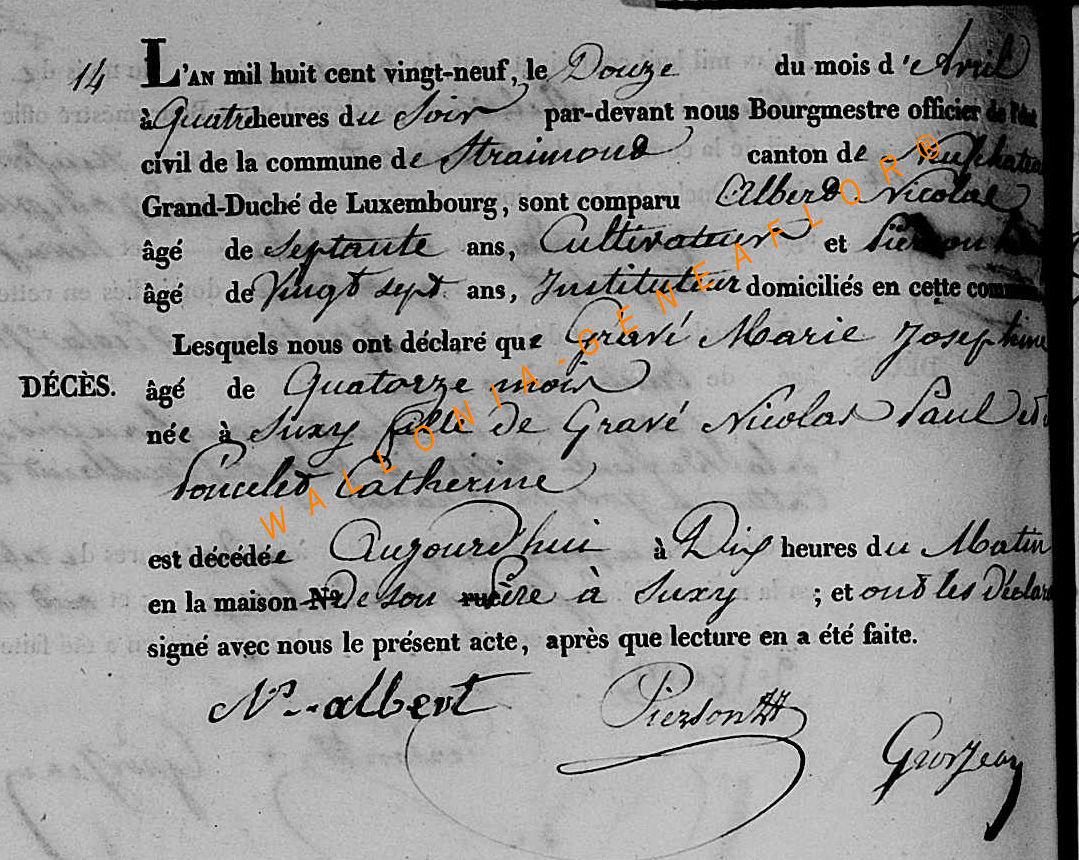 14 L'AN mil huit cent vingt-neuf, le Douze du mois d'Avril
à Quatre heures du Soir par-devant nous Bourgmestre officier de l'état
civil de la commune de Straimond canton de
Grand-Duché de Luxembourg, sont comparu Albert Nicolas
âgé de Septante ans, Cultivateur et Pierson
âgé de Vingt sept ans, Instituteur domiciliés en cette
Lesquels nous ont déclaré que Gravé Marie Josephine
DÉCÈS. âgé de Quatorze mois
née à Suxy fille de Gravé Nicolas Paul et
Poncelet Catherine
est décédée Aujourd'hui à Dix heures du Matin
en la maison N° De son père à Suxy ; et ont les Déclar
signé avec nous le présent acte, après que lecture en a été faite.
Ns. albert Pierson
Grosjean
WALLONIA-GENEAFLORE